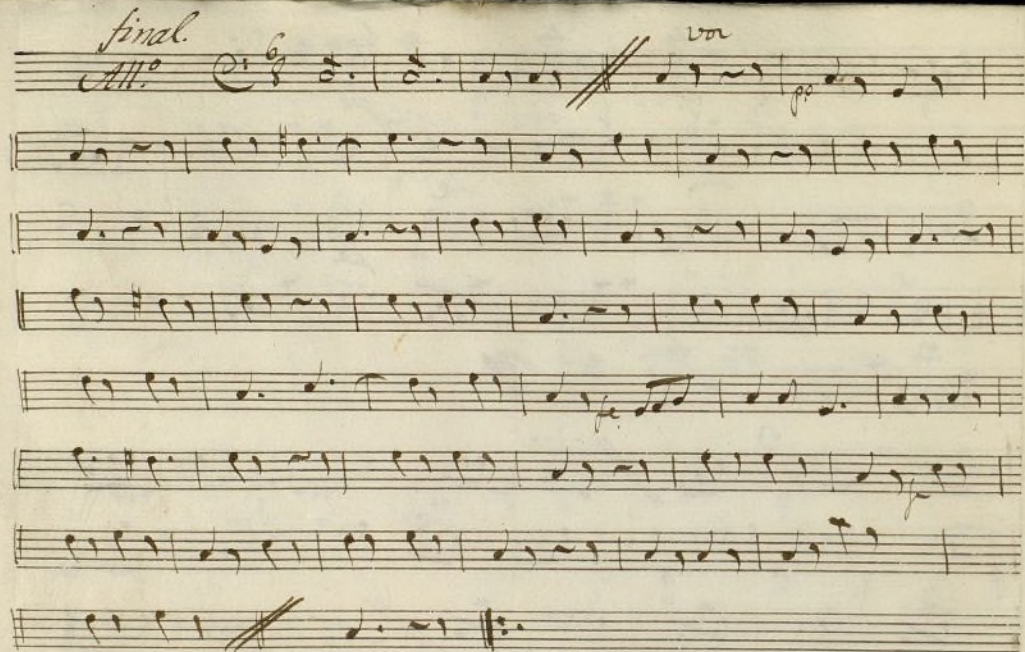 final.
All.º 6 8 voz
pº
fe
fe